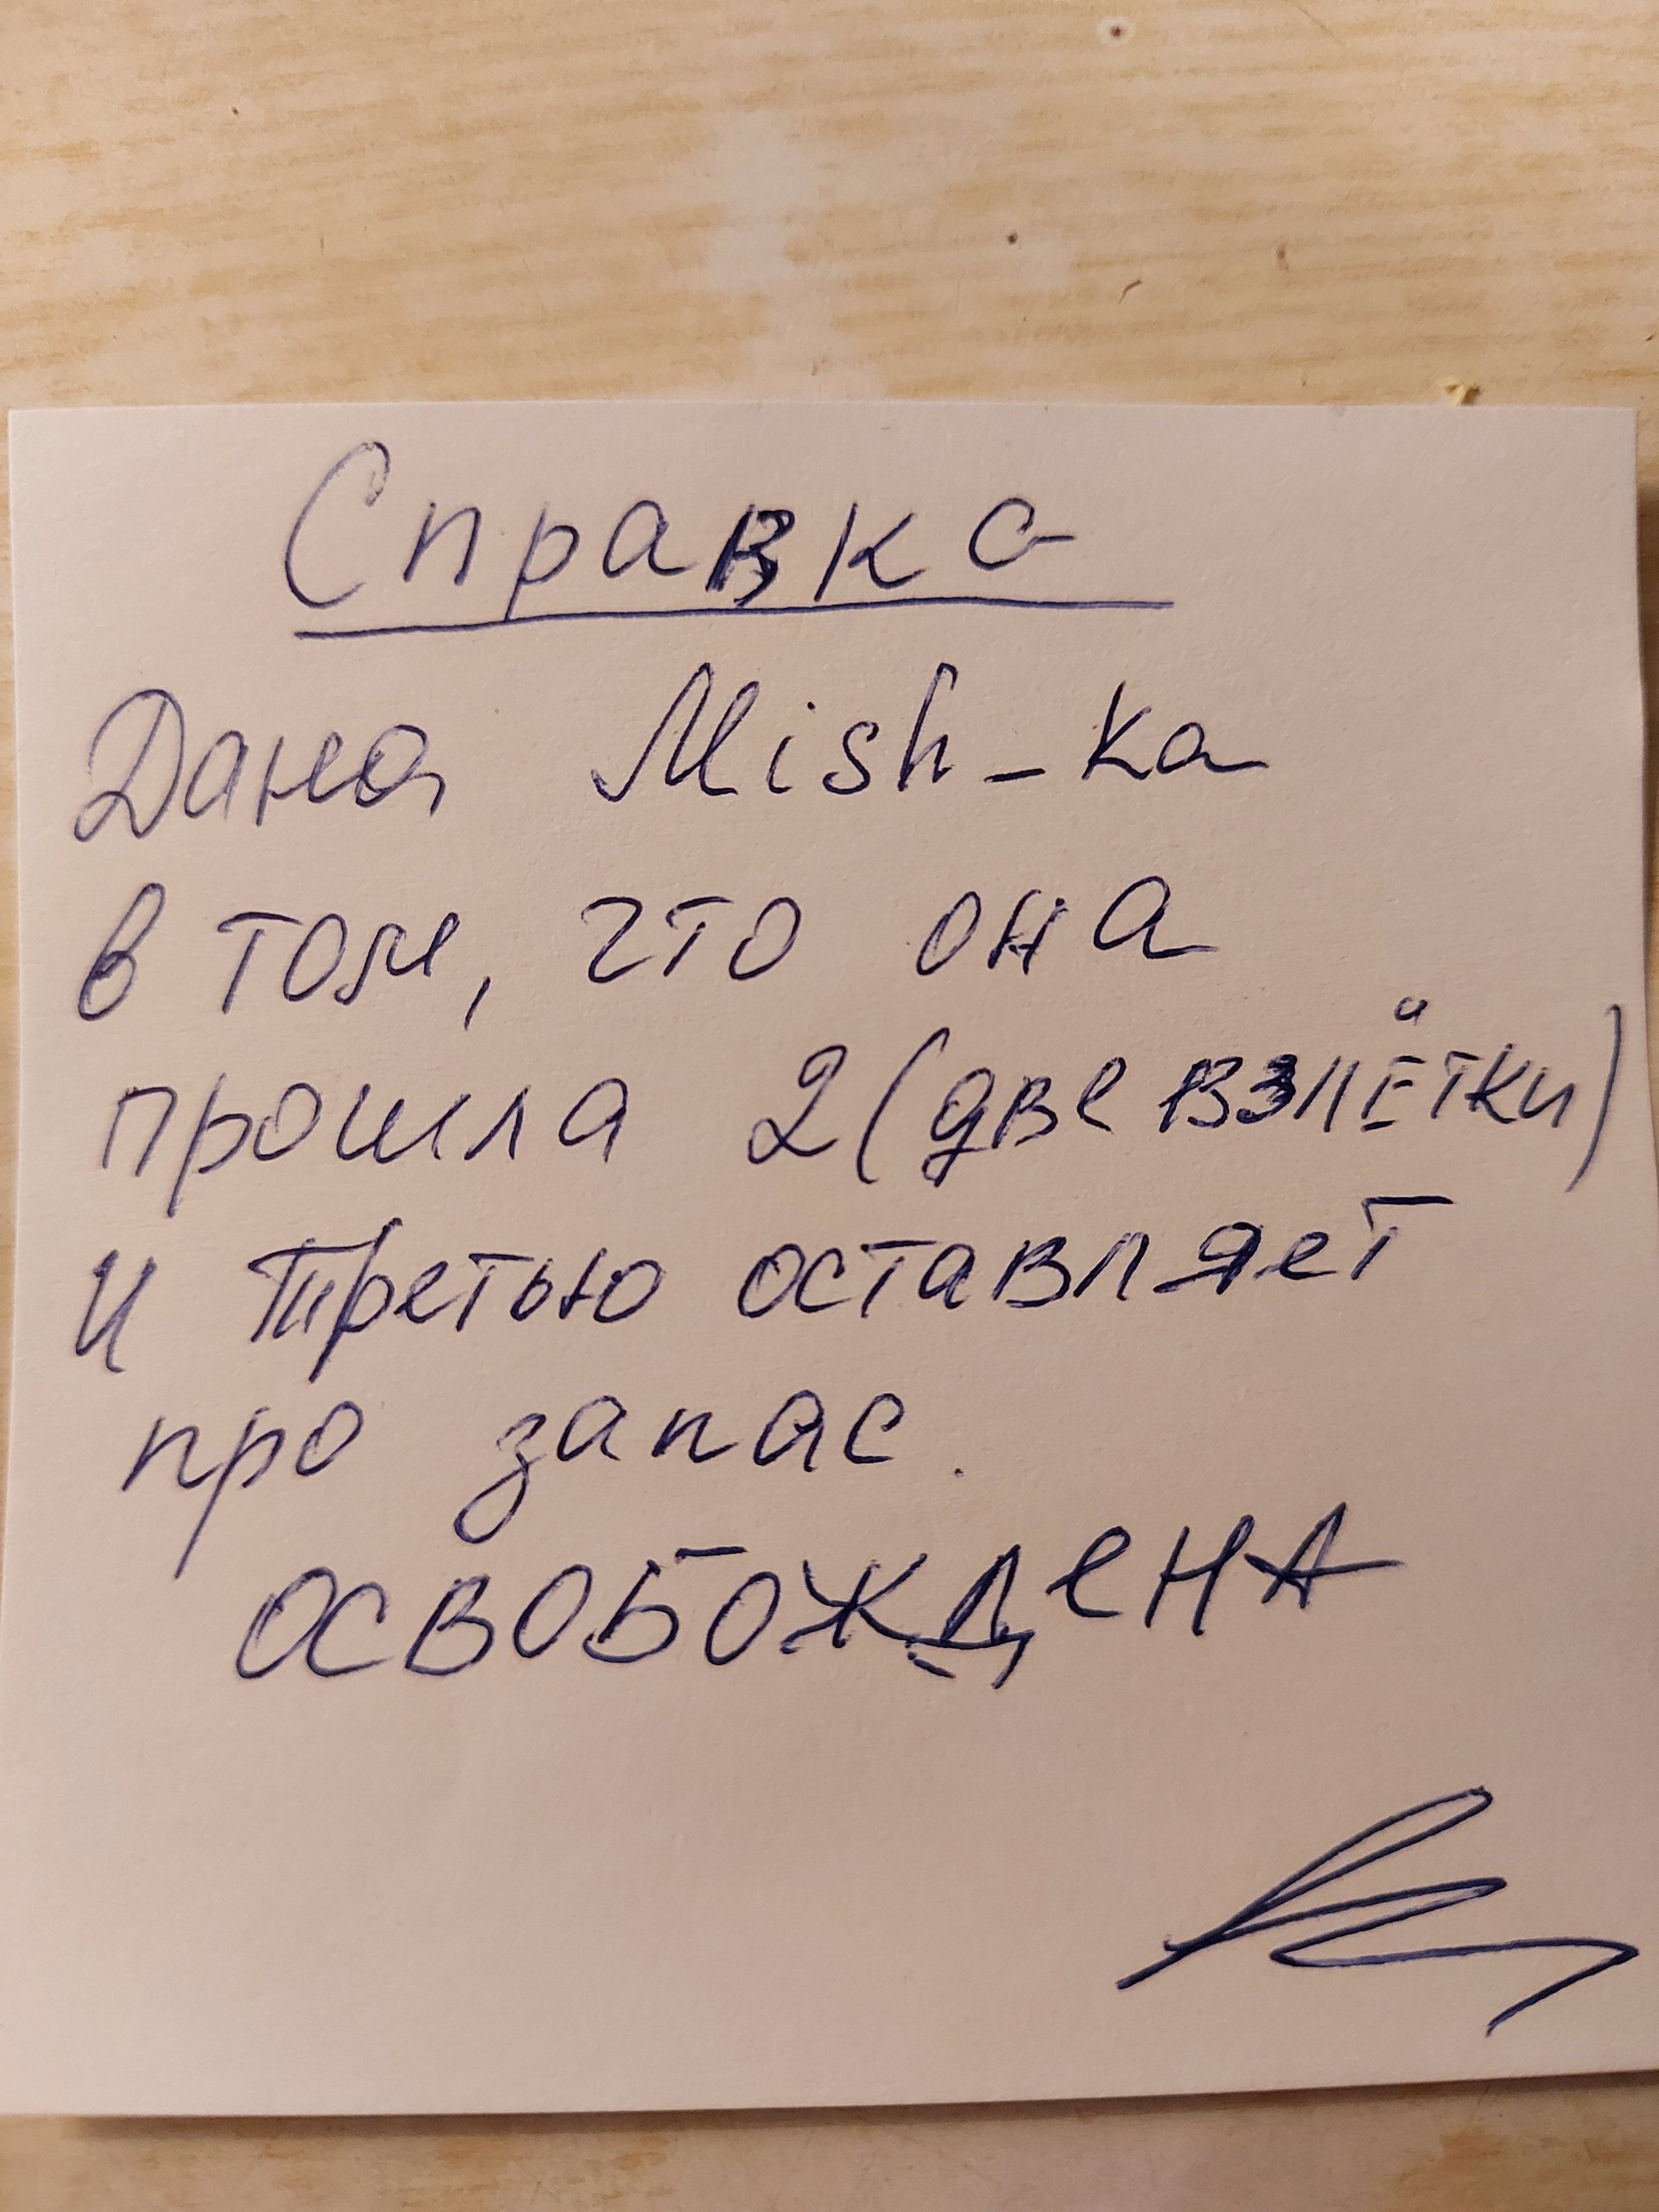 Справка
Дана Mish-ka
в том, что она
прошла 2 (две взлётки)
и третью оставляет
про запас.
ОСВОБОЖДеНА